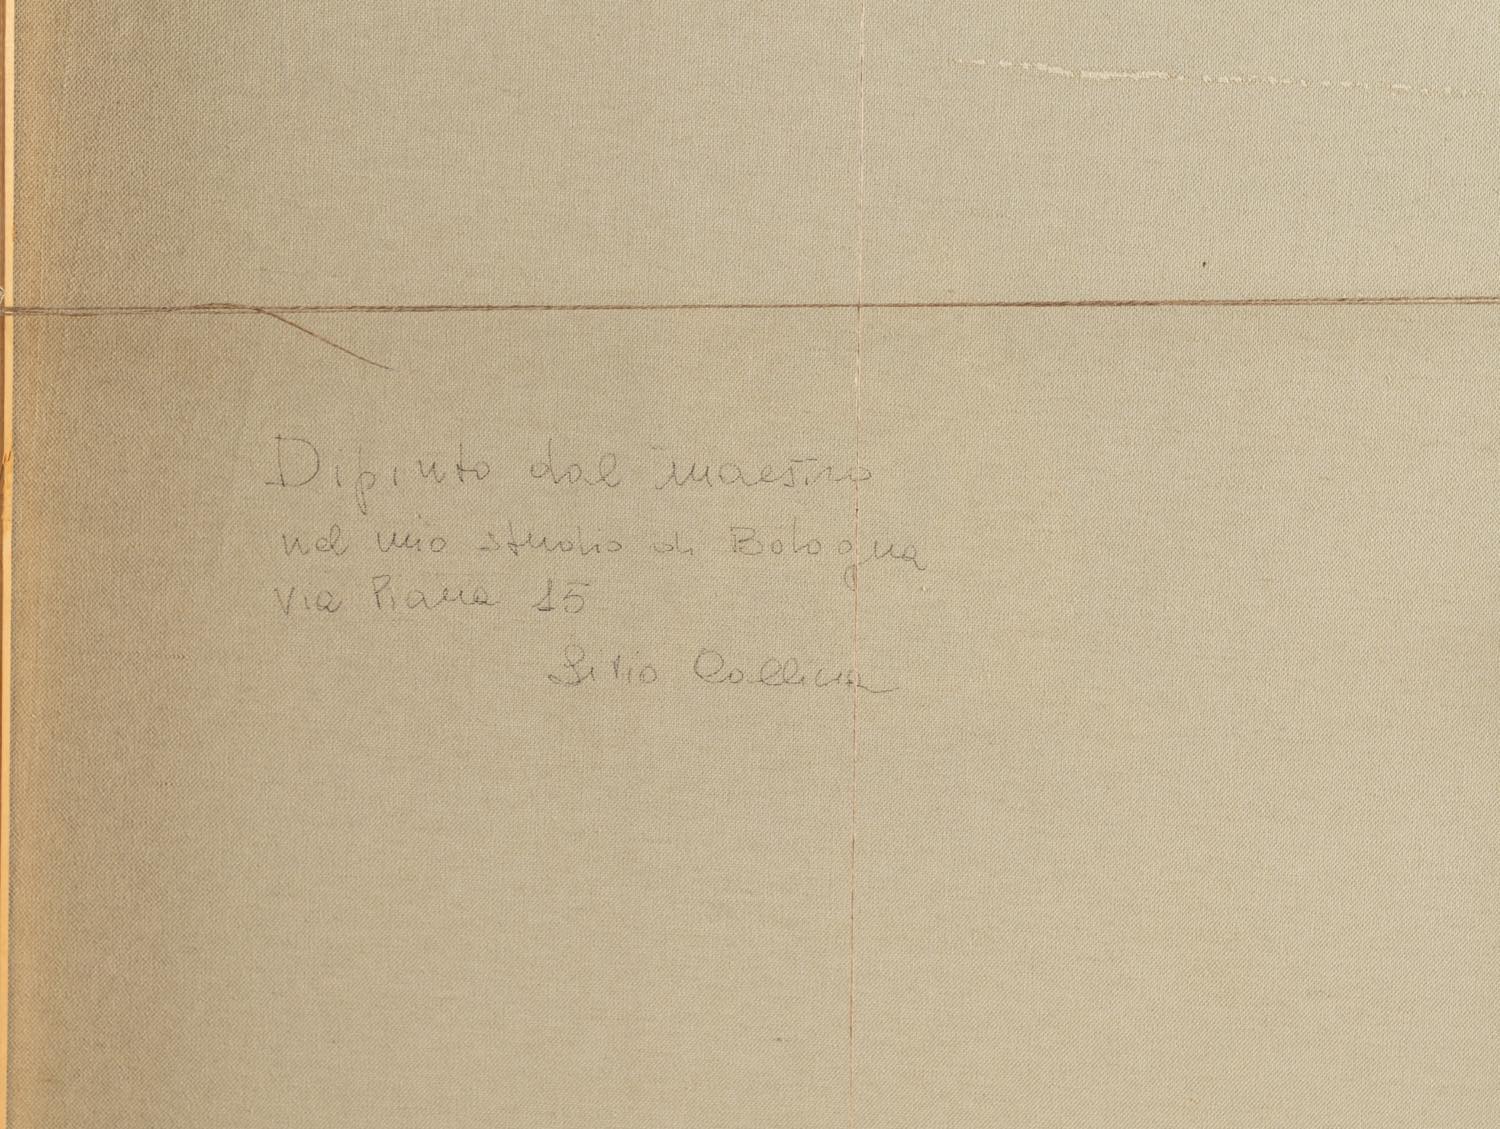 Dipinto dal maestro
nel mio studio di Bologna
Via Piana 15
Collina